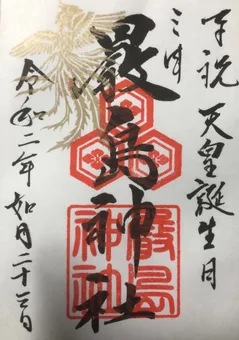 奉祝 天皇誕生日
三井
嚴島神社
嚴島
神社
令和二年 如月二十三日